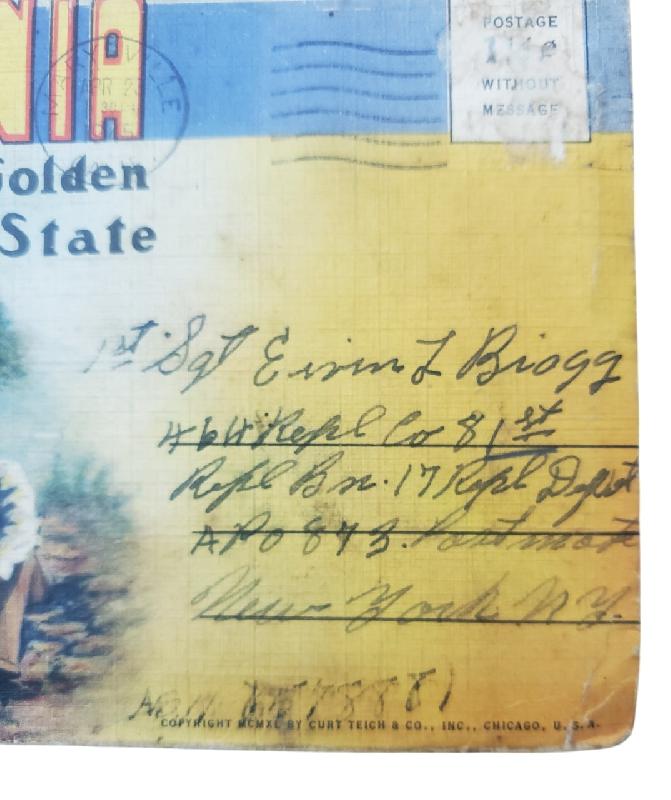 NIA
APR 23
Golden
State
POSTAGE
1½¢
WITHOUT
MESSAGE
1st Sgt Ervin L Biogg
464 Repl Co 81st
Repl Bn. 17 Repl Depot
APO 873. Postmaste
New York N.Y.
COPYRIGHT MCMXL BY CURT TEICH & CO., INC., CHICAGO, U. S. A.